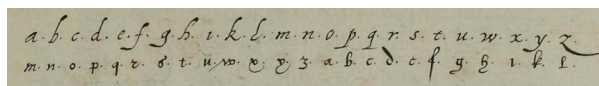 a. b. c. d. e. f. g. h. i. k. l. m. n. o. p. q. r. s. t. u. w. x. y. z
m. n. o. p. q. r. s. t. u. w. x. y. z. a. b. c. d. e. f. g. h. i. k. l.